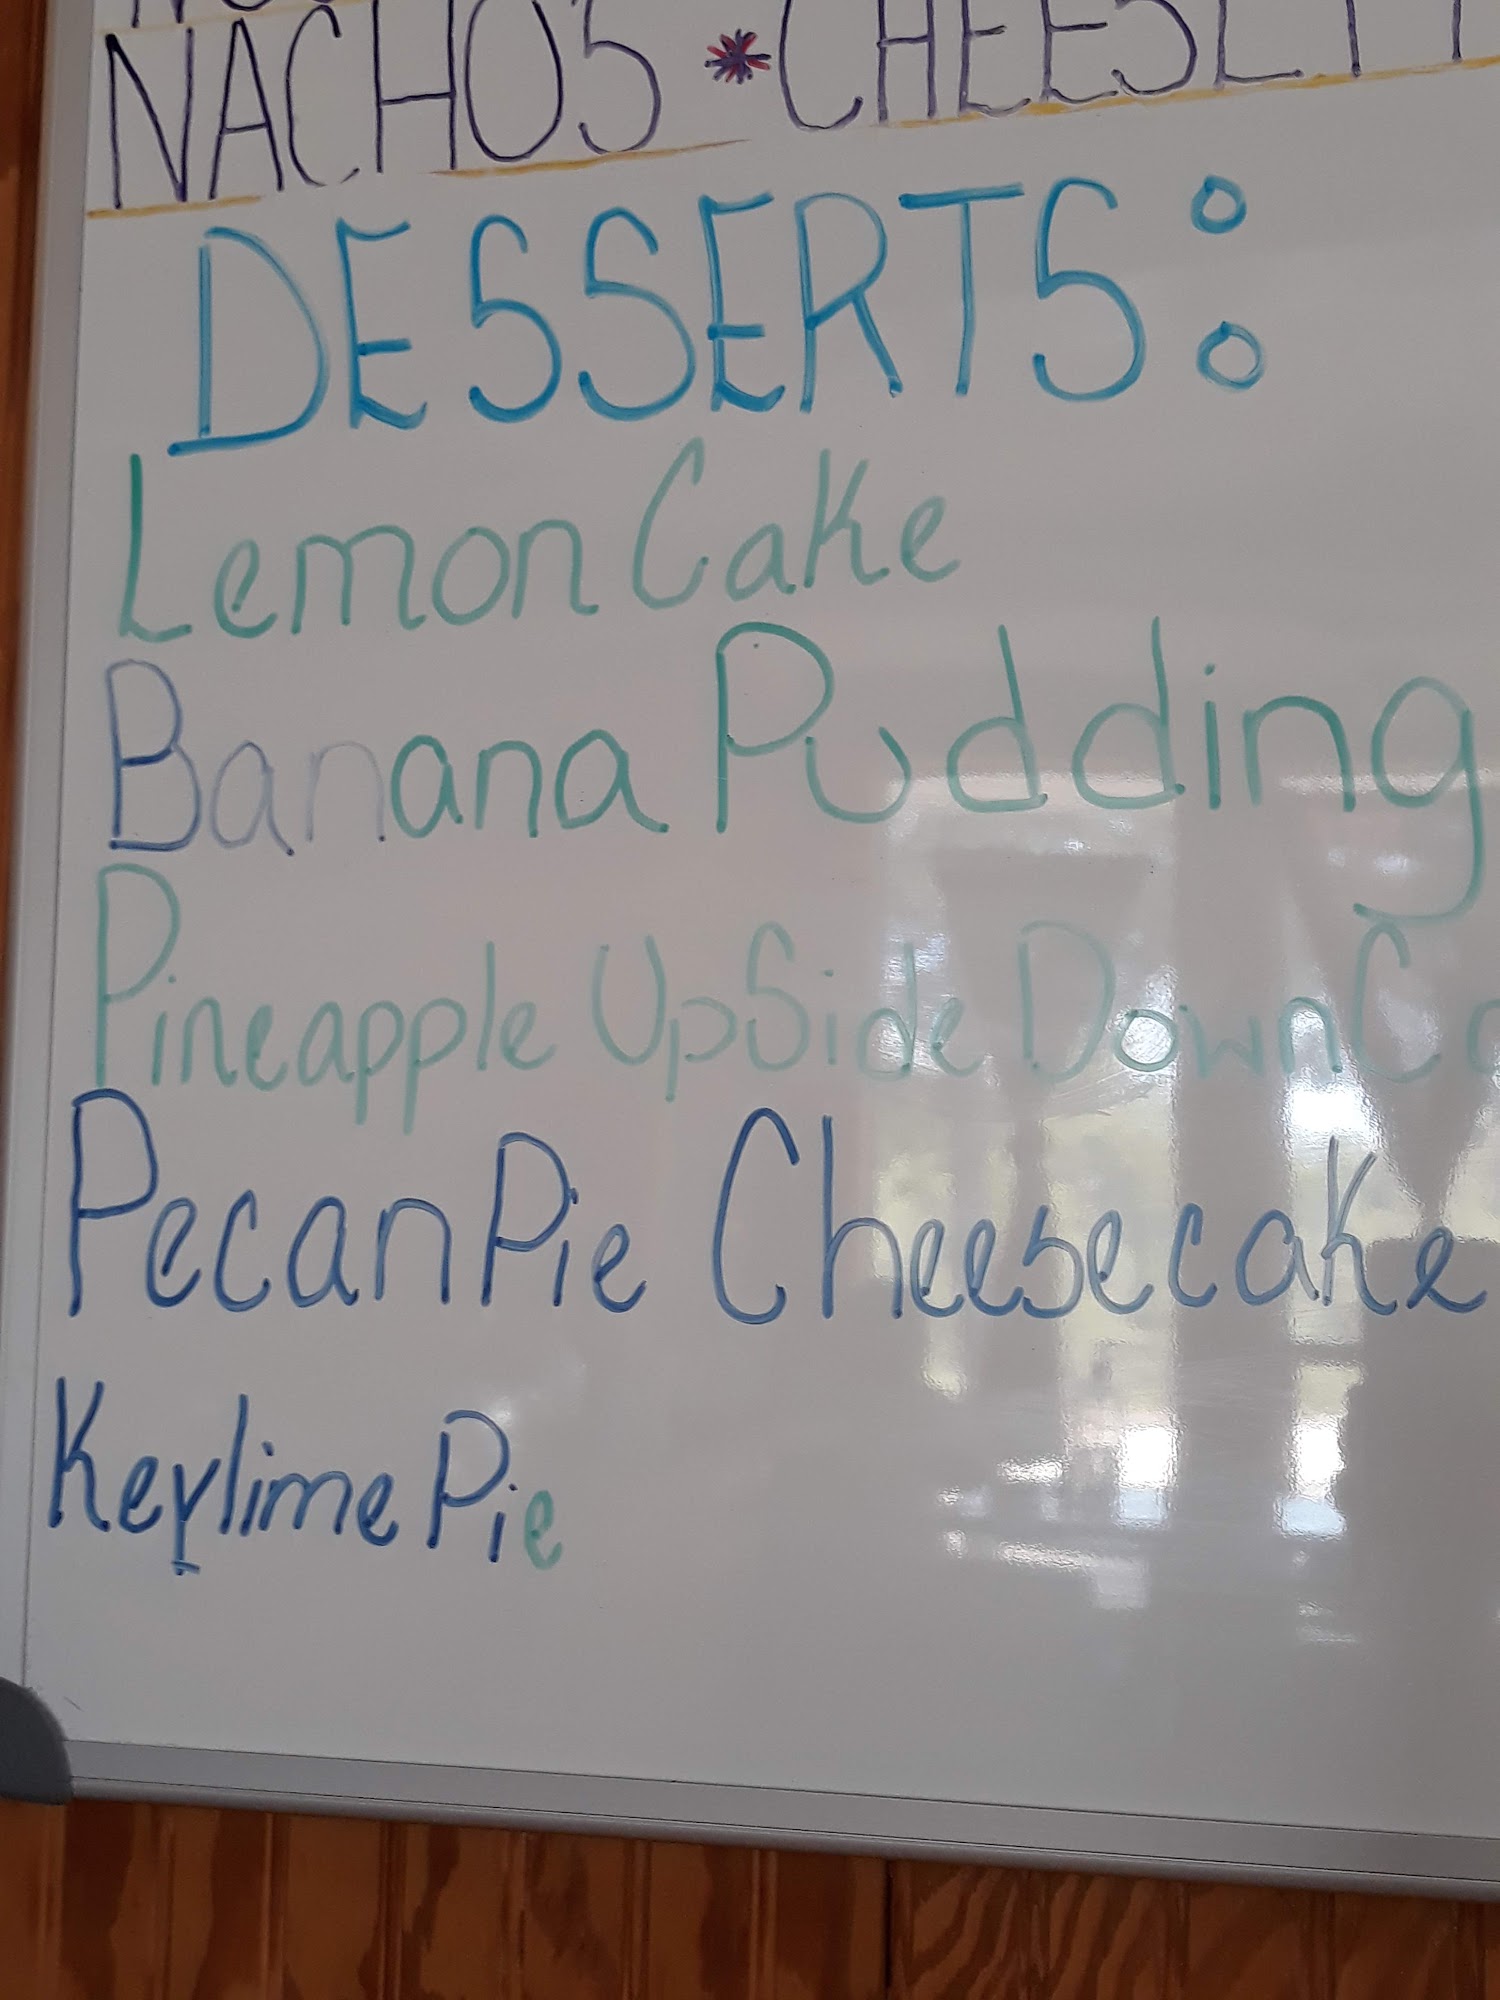 NACHO'S * CHEESE
DESSERTS:
Lemon Cake
Banana Pudding
Pineapple UpSide Down
Pecan Pie Cheesecake
Keylime Pie